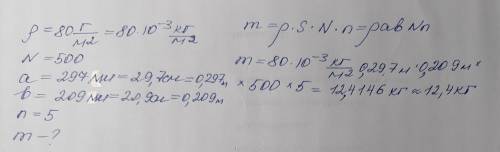 ρ = 80 г/м2 = 80·10⁻³ кг/м2
N = 500
a = 297 мм = 29,7см = 0,297м
b = 209 мм = 20,9см = 0,209м
n = 5
m - ?
m = ρ·S·N·n = ρabNn
m = 80·10⁻³ кг/м2 · 0,29,7м · 0,209м ×
× 500 × 5 = 12,4146 кг ≈ 12,4кг